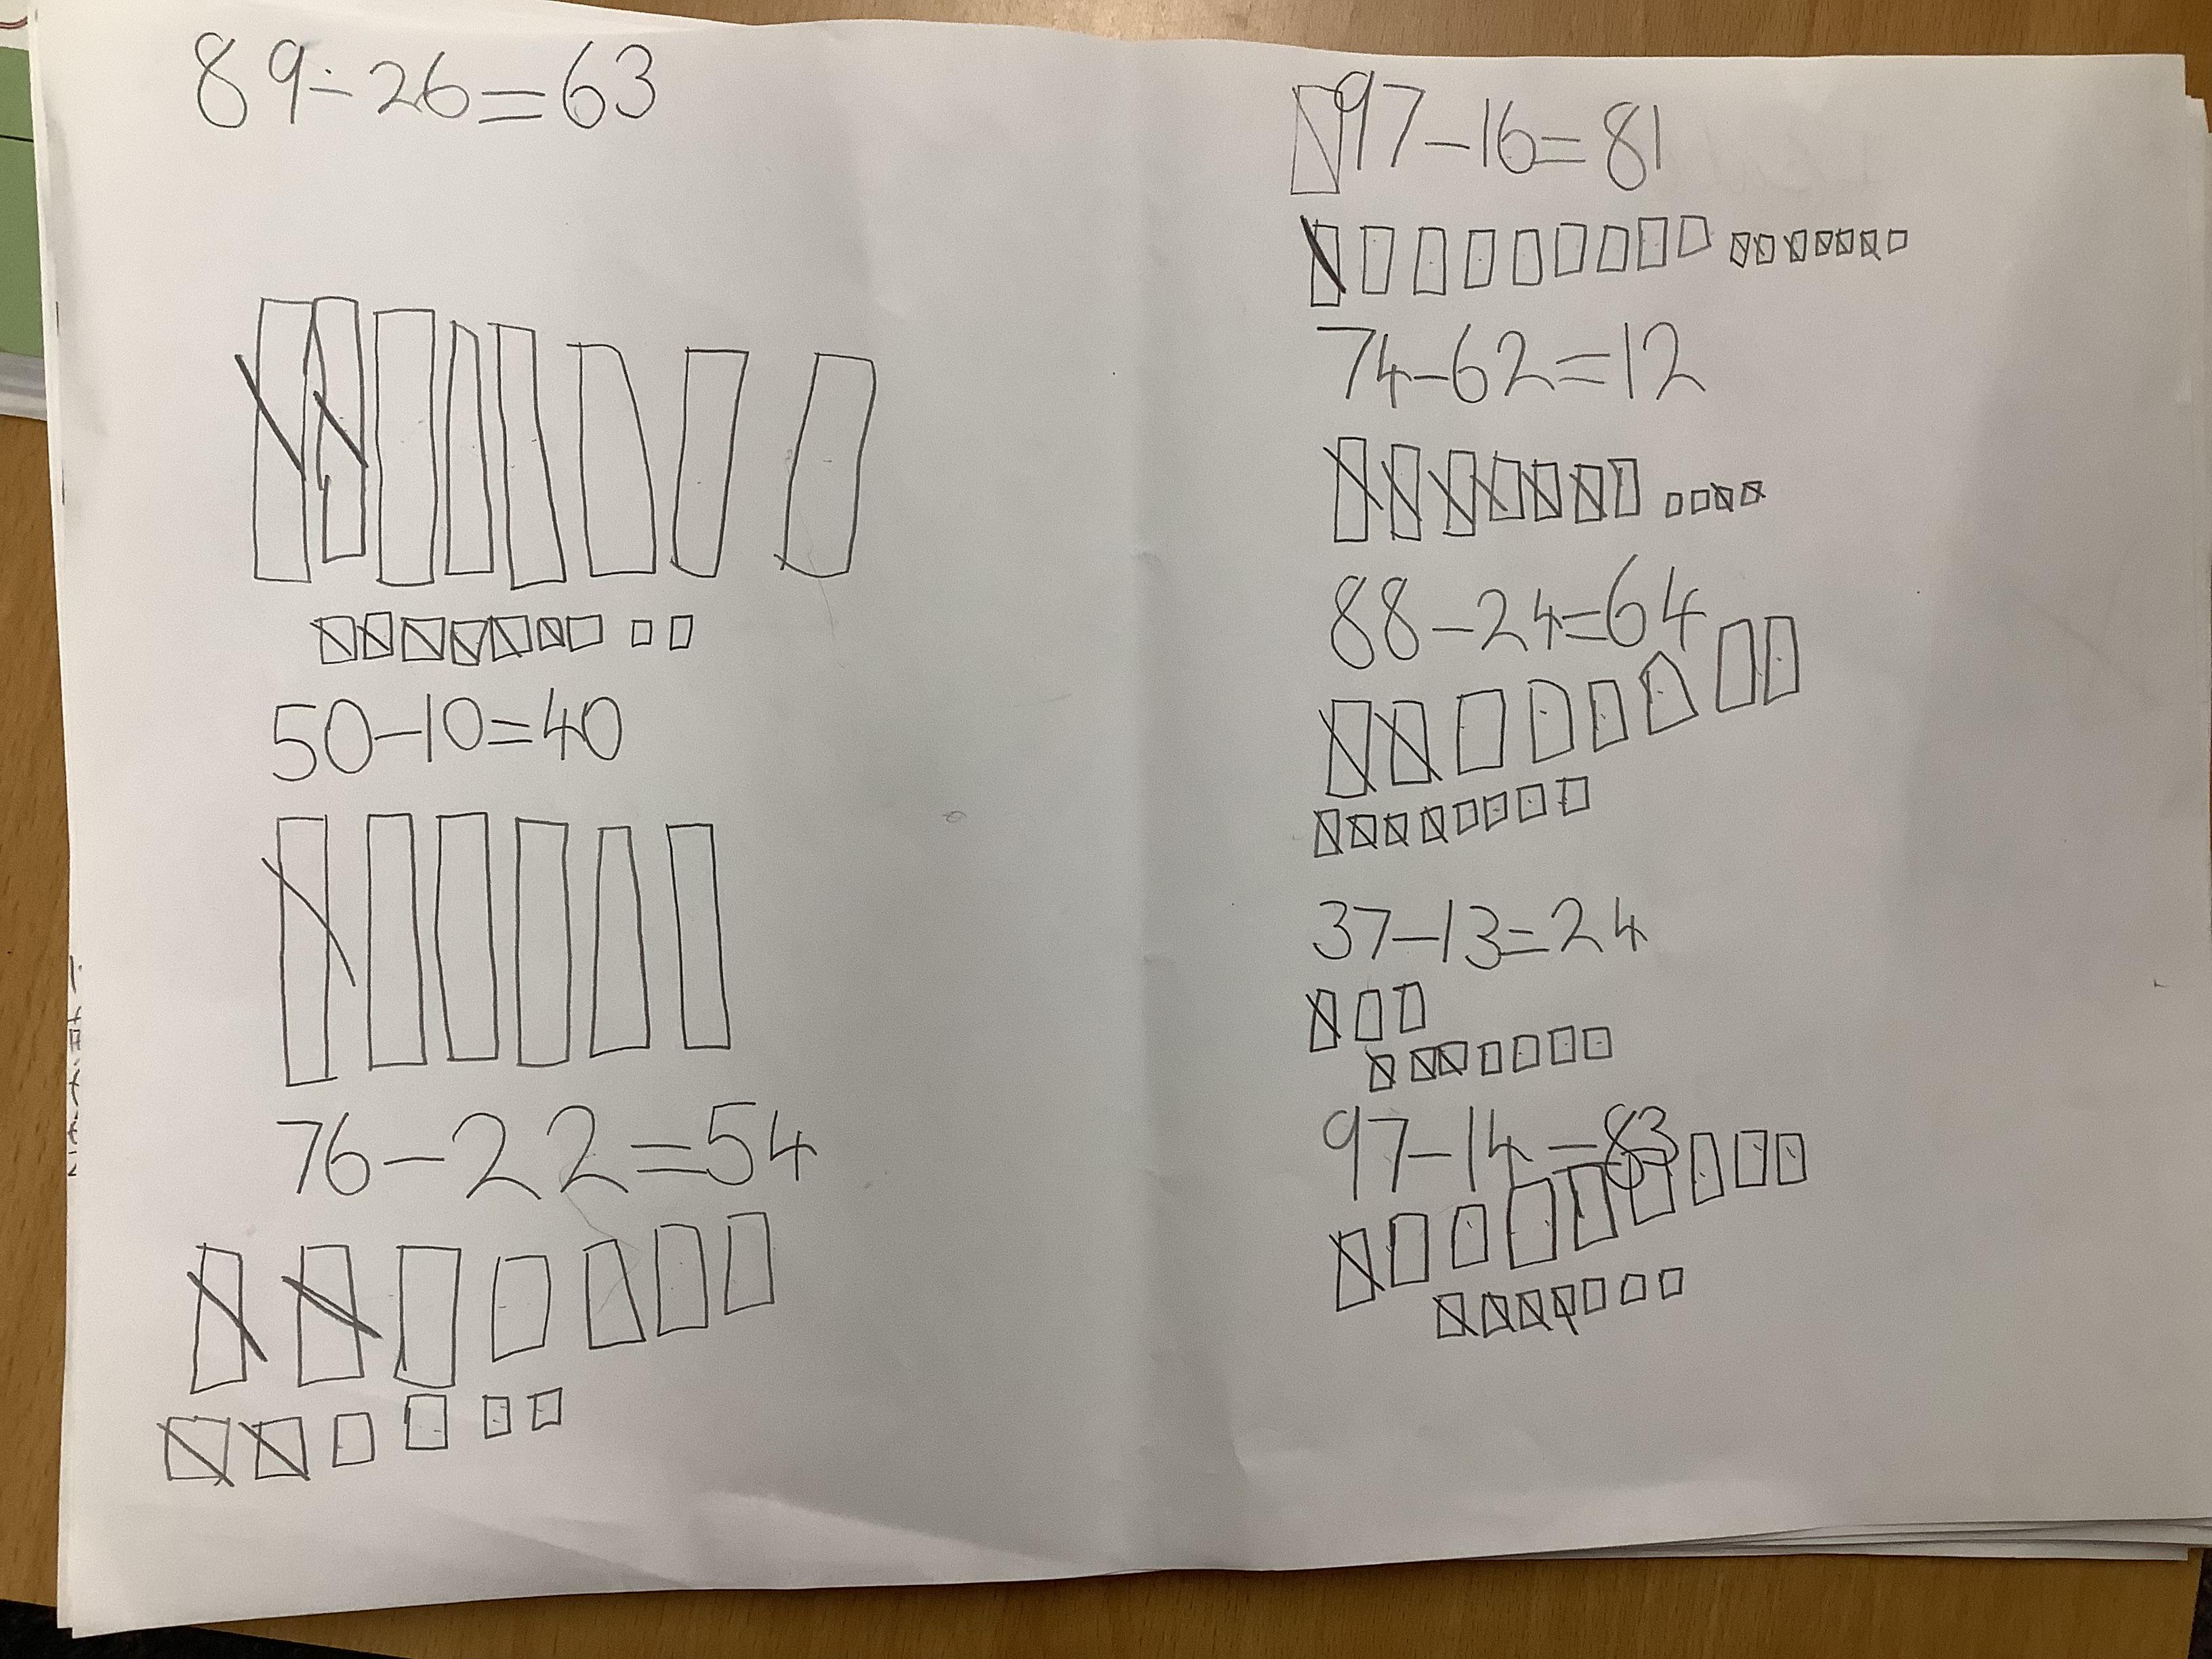 89÷26=63
50-10=40
76-22=54
97-16=81
74-62=12
88-24=64
37-13=24
97-14-83